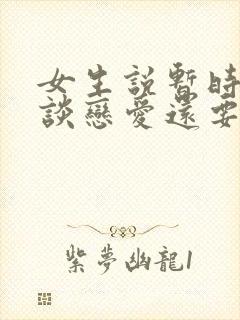 女生说暂时
談戀愛還要
紫夢幽龍1